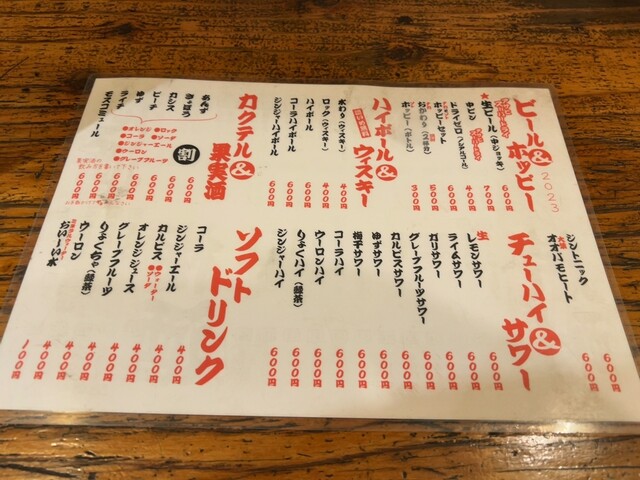 ビール&ホッピー
2023
★生ビール(中ジョッキ) 600円
中ビン 700円
ドライゼロ(ノンアルコール) 400円
ホッピーセット 600円
おかわり(ナカ) 500円
ホッピー(ボトル) 300円
ハイボール&ウィスキー
水わり(ウィスキー) 400円
ロック(ウィスキー) 400円
ハイボール 500円
コーラハイボール 600円
ジンジャーハイボール 600円
カクテル&果実酒
あんず 600円
きょほう 600円
カシス 600円
ピーチ 600円
ゆず 600円
ライチ 600円
モスコミュール 600円
割
●ロック
●ソーダ
●オレンジ
●コーラ
●ジンジャーエール
●ウーロン
●グレープフルーツ
ジントニック 600円
オオバモヒート 600円
チューハイ&サワー
生レモンサワー 600円
ライムサワー 600円
ガリサワー 600円
グレープフルーツサワー 600円
カルピスサワー 600円
ゆずサワー 600円
梅干サワー 600円
コーラハイ 600円
ウーロンハイ 600円
りょくハイ(緑茶) 600円
ジンジャーハイ 600円
ソフトドリンク
コーラ 400円
ジンジャーエール 400円
カルピス ●ウォーター ●ソーダ 400円
オレンジジュース 400円
グレープフルーツ 400円
りょくちゃ(緑茶) 400円
ウーロン 400円
おいしーい水 100円